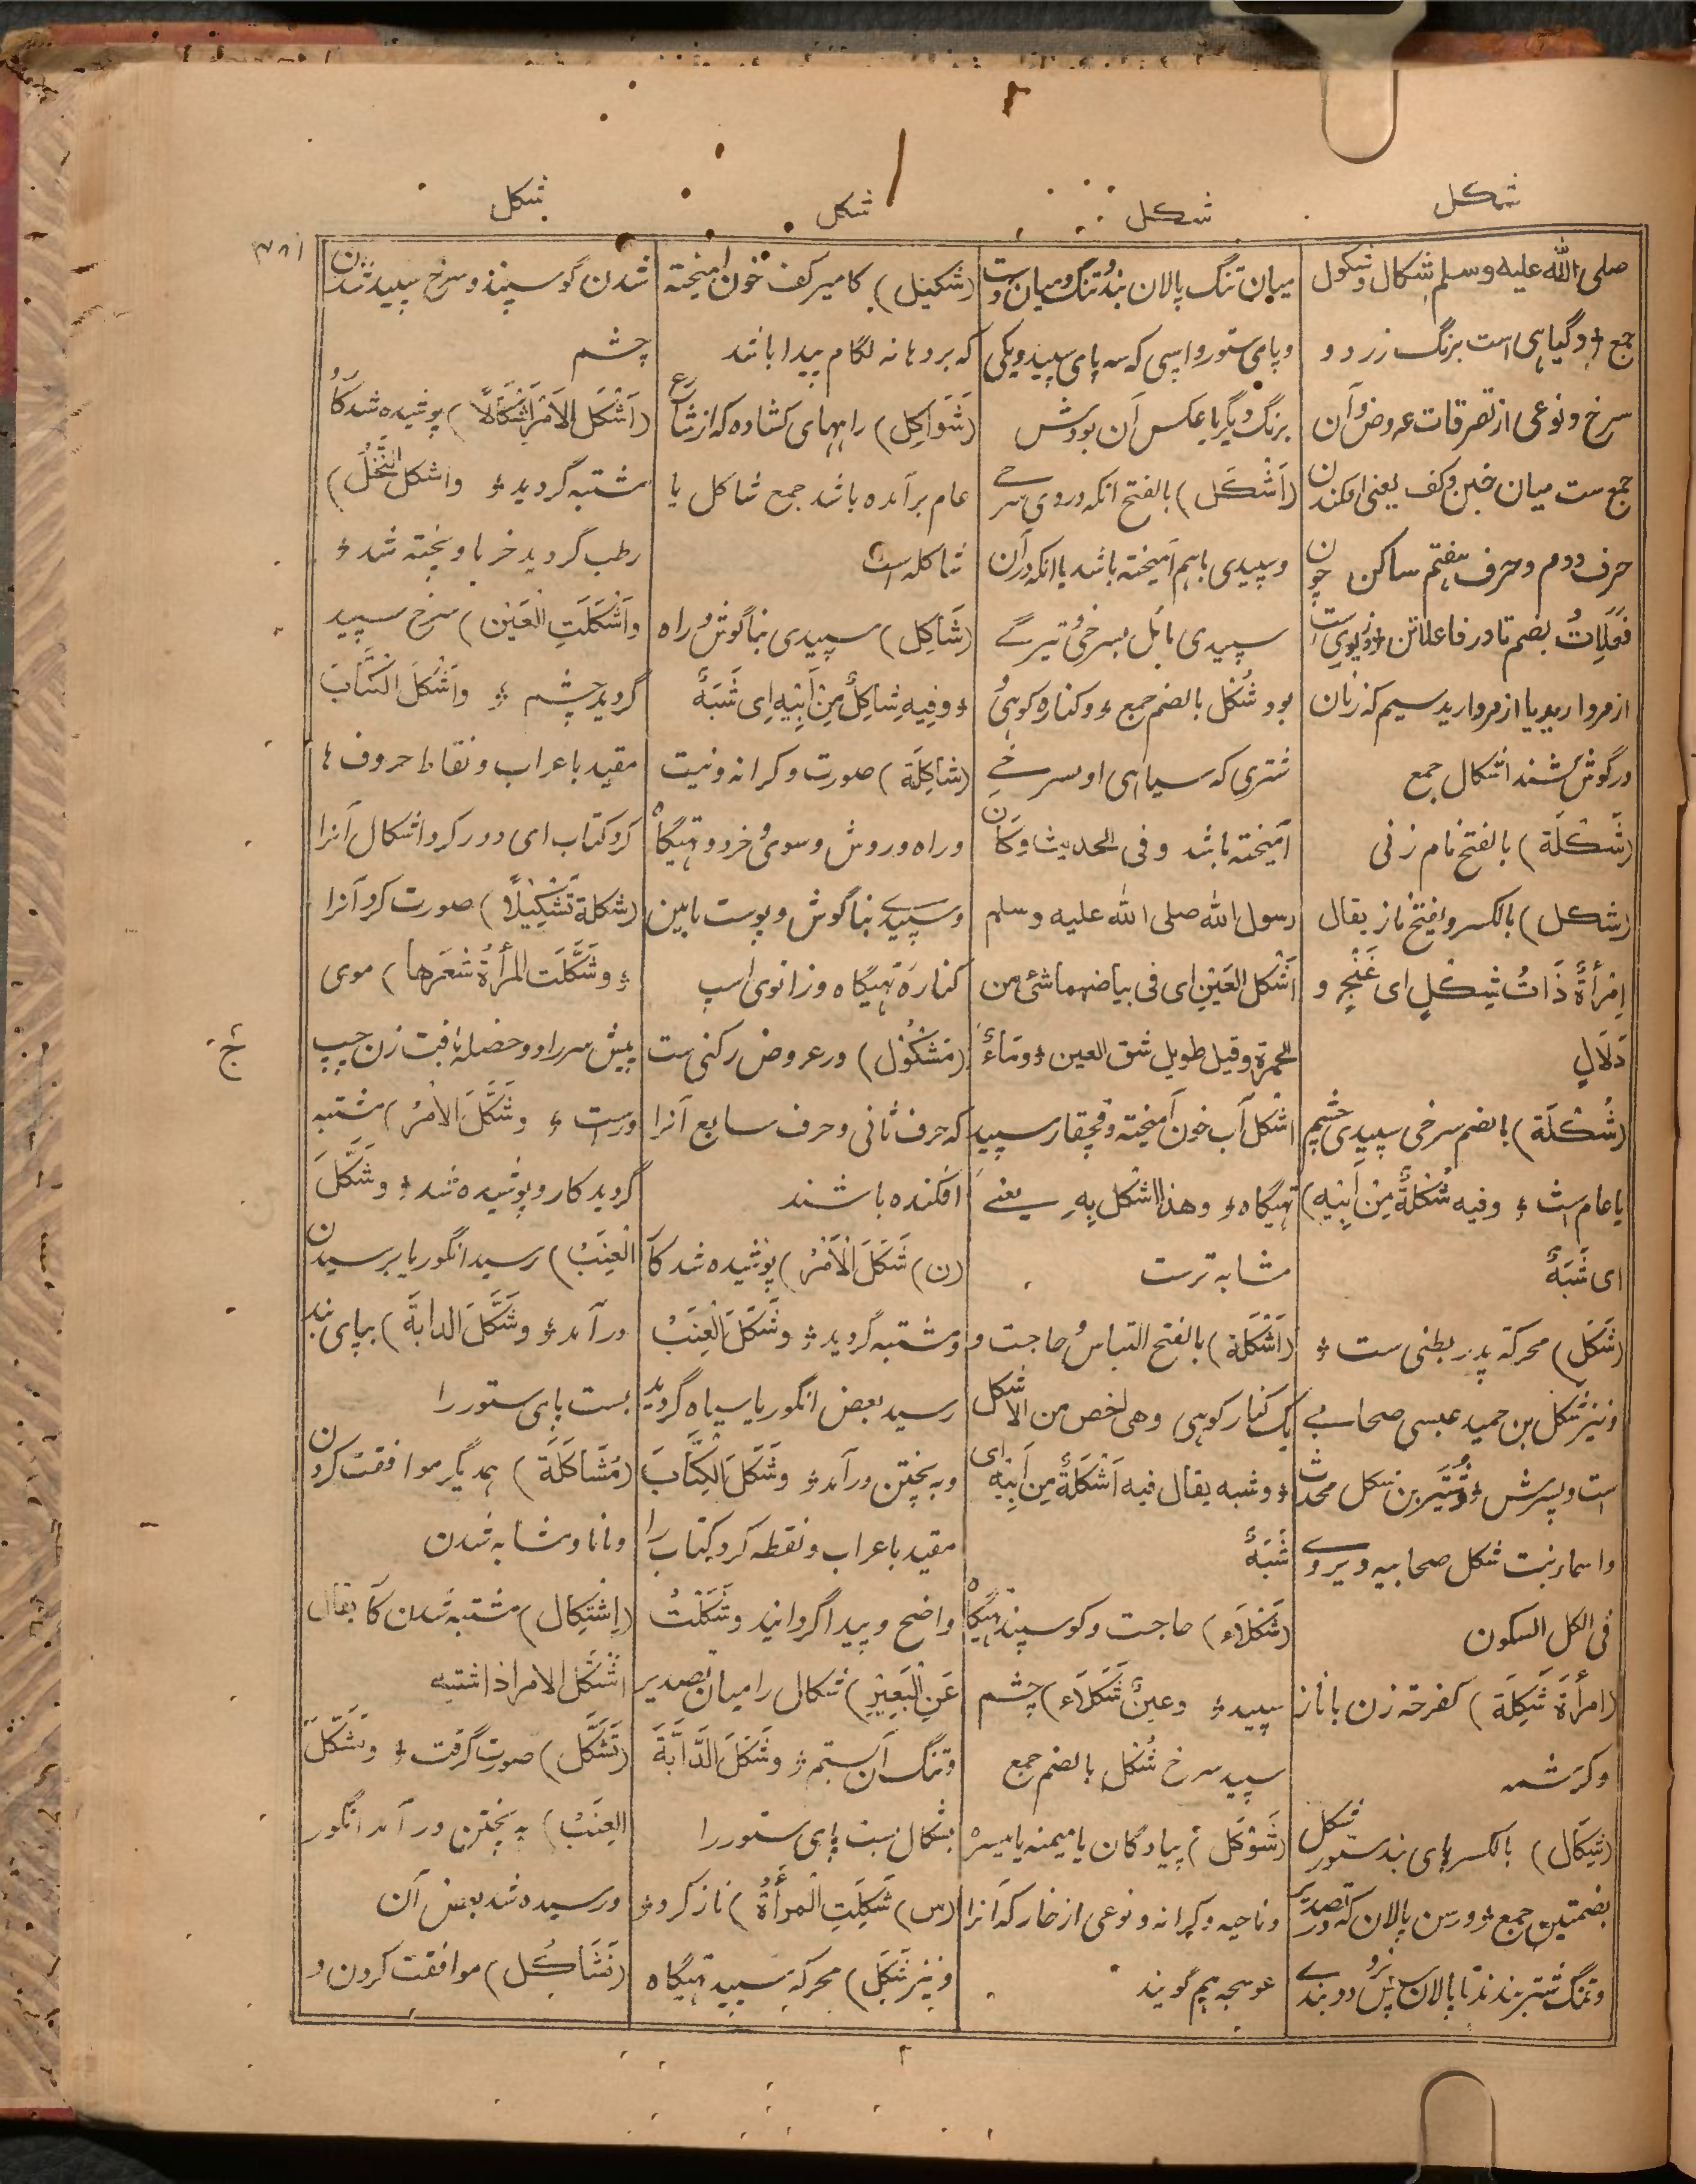 شکل
شکل
شکل
شکل
صلی الله علیه وسلم شکال وشکول
جمع ؛ و گیاهی است برنگ زرد و
سرخ و نوعی از تصرفات عروض و آن
جمع ست میان خبن وکف یعنی افکندن
حرف دوم و حرف هفتم ساکن چون
فَعَلَاتُ بضم تا در فاعلاتن
از مروارید یا از مروارید سیم که زنان
در گوش کشند اشکال جمع
(شَکْلَة) بالفتح نام زنی
(شکل) بالکسر و یفتح ناز یقال
اِمْرأةٌ ذَاتُ شِکْلٍ ای غَنْجٍ و
دَلَالٍ
(شُکْلَة) بالضم سرخی سپیدی چشم
یا عام است ؛ وفیه شُکْلَةٌ مِنْ اَبِیْهِ)
ای شَبَهٌ
(شَکَل) محرکة پدر بطنی ست ؛
ونیز شکل بن حمید عبسی صحابے
است و پسرش ؛ شُتَیر بن شکل محدث
واسماء بنت شکل صحابیه ویروے
فی الکل السکون
(امرأة شَکِلَة) کفرحة زن با ناز
وکرشمه
(شِکَال) بالکسر پای بند ستور شکل
بضمتین جمع ؛ و رسن پالان که تصدیر
و تنگ شتر بندند تا پالان پس نرود و بندے
میان تنگ پالان بندُ تنگ و میان دست
و پای ستور و اسپی که سه پای سپید و یکی
برنگ دیگر یا عکس آن بود ش
(اَشْکَل) بالفتح انکه در وی سرخے
و سپیدی باهم آمیخته باشد یا انکه در آن
سپیدی مائل بسرخیُ تیرگے
بود شُکْل بالضم جمع ؛ و کنار کوهیُ
شتری که سیاهی او بسرخے
آمیخته باشد وفی الحدیث وکان
رسول الله صلی الله علیه وسلم
اَشْکَل العَیْنِ ای فی بیاضهما شئ من
الحمرة وقیل طویل شق العین ؛ ومَاءٌ
اشْکَل آب خون آمیخته و قچقار سپید
تهیگاه ؛ وهذا اَشْکَل بِهِ یعنے
مشابه ترست
(اَشْکَلَة) بالفتح التباسُ حاجت و
یک کنار کوهی وهی اخص من الاشکل
؛ وشبه یقال فیه اَشْکَلَةٌ مِن اَبِیْهِ ای
شَبَهٌ
(شَکْلَاء) حاجت و گوسپند تهیگاه
سپید ؛ وعینٌ شَکْلَاء) چشم
سپید سرخ شُکْل بالضم جمع
(شَوْکَل) پیادگان یا میمنه یا میسره
و ناحیه و کرانه و نوعی از خار که آنرا
عوسجه هم گویند
(شَکِیْل) کامیر کف خون آمیخته
که بر دهانه لگام پیدا باشد
(شَوَاکِل) راههای کشاده که از شارع
عام بر آمده باشد جمع شاکل یا
شاکله است
(شَاکِل) سپیدی بناگوشُ راه
؛ وفِیهِ شاکِلٌ مِنْ اَبِیْهِ ای شَبَهٌ
(شاکِلَة) صورت و کرانه و نیت
و راه و روش و سویُ خرد و تهیگاه
و سپیدے بناگوش و پوست مابین
کنارهٔ تهیگاه و زانوی اسپ
(مَشْکُوْل) در عروض رکنی ست
که حرف ثانی و حرف سابع آنرا
افکنده باشند
(ن) شَکَلَ الْاَمْرُ) پوشیده شد کار
و مشتبه گردید ؛ وشَکَلَ العِنَبُ
رسید بعض انگور یا سیاه گردید
و به پختن در آمد ؛ وشَکَلَ الکِتَابَ
مقید باعراب و نقطه کرد کتاب را
واضح و پیدا گردانید وشَکَلْتُ
عَنِ الْبَعِیْرِ) شکال را میان تصدیر
وتنگ آن بستم ؛ وشَکَلَ الدَّابَّةَ
بشکال بست پای ستور را
(س) شَکِلَتِ الْمَرأةُ) ناز کرد ؛
ونیز شَکَل) محرکة سپید تهیگاه
شدن گوسپند و سرخ سپید شدن
چشم
(اَشْکَل الاَمْرُ اِشْکَالًا) پوشیده شد کار و
مشتبه گردید ؛ واَشکل النَّخْلُ)
رطب گردید خرما و پخته شد ؛
واَشْکَلَتِ العَیْن) سرخ سپید
گردید چشم ؛ واَشْکَلَ الکتَابَ
مقید باعراب و نقاط حروف ها
کرد کتاب ای دور کرد اشکال آنرا
(شکلة تَشْکِیْلًا) صورت کرد آنرا
؛ وشَکَّلَت المرأةُ شَعرَها) موی
پیش سر را دو خصله بافت زن چپ
و راست ؛ وشَکَّلَ الامْرُ) مشتبه
گردید کار و پوشیده شد ؛ وشَکَّلَ
الْعِنَبُ) رسید انگور یا برسیدن
در آمد ؛ وشَکَّلَ الدابةَ) بپای بند
بست پای ستور را
(مُشَاکَلَة) همدیگر موافقت کردن
و مانا و مشابه شدن
(اِشْتِکَال) مشتبه شدن کار یقال
اشْتَکَل الامر اذا اشتبه
(تَشَکُّل) صورت گرفت ؛ وتَشَکَّلَ
العِنَبُ) به پختن در آمد انگور
و رسیده شد بعض آن
(تَشَاکُل) موافقت کردن و